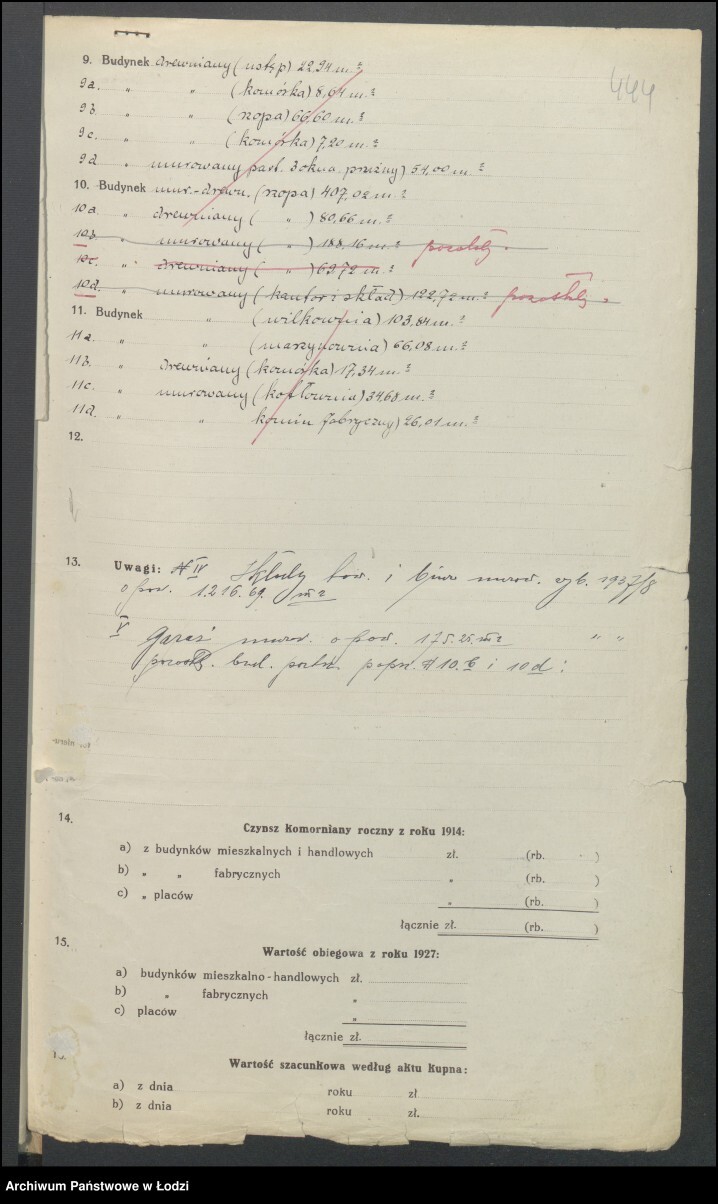 444
9. Budynek drewniany (ustęp) 22,94 m²
9a. " " (komórka) 8,64 m²
9b " " (szopa) 66,60 m²
9c. " " (komórka) 7,20 m²
9d " murowany part. 3 okna 54,00 m²
10. Budynek mur.-drewn. (szopa) 407,02 m²
10a " drewniany ( " ) 80,66 m²
10b " murowany ( " ) 188,16 m²
10c. " drewniany ( " ) 69,72 m²
10d. " murowany (kantor i skład) 122,72 m²
11. Budynek " (wilkownia) 103,84 m²
11a. " " (maszynownia) 66,08 m²
11b. " drewniany (komórka) 17,34 m²
11c. " murowany (kotłownia) 34,68 m²
11d. " " komin fabryczny) 26,01 m²
12.
13. Uwagi: IV Składy tow. i biur murow. wyb. 1937/8
o pow. 1.216.69. m²
V Garaż murow. o pow. 175.25. m² " "
bud. 10.b i 10d:
14.
Czynsz komorniany roczny z roku 1914:
a) z budynków mieszkalnych i handlowych zł. (rb. )
b) " " fabrycznych " (rb. )
c) " placów " (rb. )
łącznie zł. (rb. )
15.
Wartość obiegowa z roku 1927:
a) budynków mieszkalno-handlowych zł.
b) " fabrycznych "
c) placów "
łącznie zł.
Wartość szacunkowa według aktu kupna:
a) z dnia roku zł
b) z dnia roku zł.
Archiwum Państwowe w Łodzi